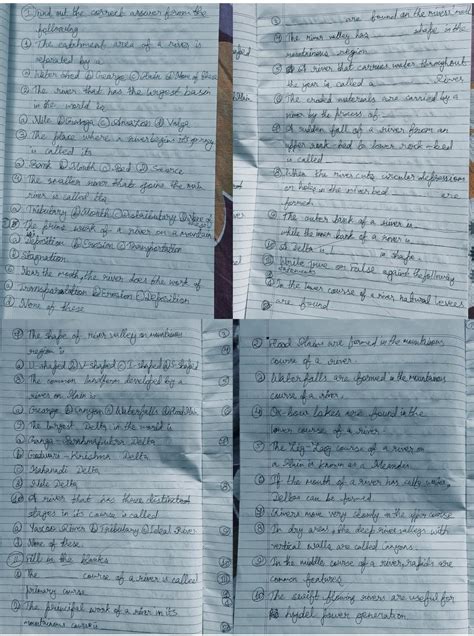 ① Find out the correct answer from the
following
① The catchment area of a river is
separated by a
ⓐ Water shed ⓑ George ⓒ Plain ⓓ None of these
② The river that has the largest basin
in the world is
ⓐ Nile ⓑ Ganga ⓒ Amazon ⓓ Volga
③ The place where a river begin its journey
is called its
ⓐ Bank ⓑ Mouth ⓒ Bed ⓓ Source
④ The smaller river that joins the main
river is called its
ⓐ Tributary ⓑ Mouth ⓒ Distributary ⓓ None of
⑤ The prime work of a river on a mountain
is
ⓐ Deposition ⓑ Erosion ⓒ Transportation
ⓓ Stagnation
⑥ Near the mouth, the river does the work of
ⓐ Transportation ⓑ Erosion ⓒ Deposition
ⓓ None of these
⑦ The shape of river valley on mountainous
region is
ⓐ U-shaped ⓑ V-shaped ⓒ I-shaped ⓓ S-shaped
⑧ The common landform developed by a
river on Plain is
ⓐ George ⓑ Canyon ⓒ Waterfalls ⓓ Flood Plain
⑨ The largest Delta in the world is
ⓐ Ganga-Bramhaputra Delta
ⓑ Godavari-Krishna Delta
ⓒ Mahanadi Delta
ⓓ Nile Delta
⑩ A river that has three distinct
stages in its course is called
ⓐ Yazoo River ⓑ Tributary ⓒ Ideal River
ⓓ None of these
② Fill in the blanks
① The course of a river is called
primary course
② The principal work of a river in its
mountainous course is
③ are found on the river's mouth
④ The river valley has shape in the
mountainous region
⑤ A river that carries water throughout
the year is called a River
⑥ The eroded materials are carried by a
river by the process of
⑦ A sudden fall of a river from an
upper rock-bed to lower rock-bed
is called
⑧ When the river cuts circular depressions
or holes in the river bed are
formed
⑨ The outer bank of a river is
while the inner bank of a river is
⑩ A Delta is in shape.
③ Write True or False against the following
① In the lower course of a river natural levees
are found
② Flood Plains are formed in the mountainous
course of a river.
③ Waterfalls are formed in the mountainous
course of a river.
④ Ox-bow lakes are found in the
lower course of a river.
⑤ The Zig-Zag course of a river on
a Plain is known as a Meander.
⑥ If the mouth of a river has salty water,
Deltas can be formed.
⑦ Rivers move very slowly in the upper course
⑧ In dry areas, the deep river valleys with
vertical walls are called Canyons.
⑨ In the middle course of a river, rapids are
common features
⑩ The swift flowing rivers are useful for
hydel power generation.